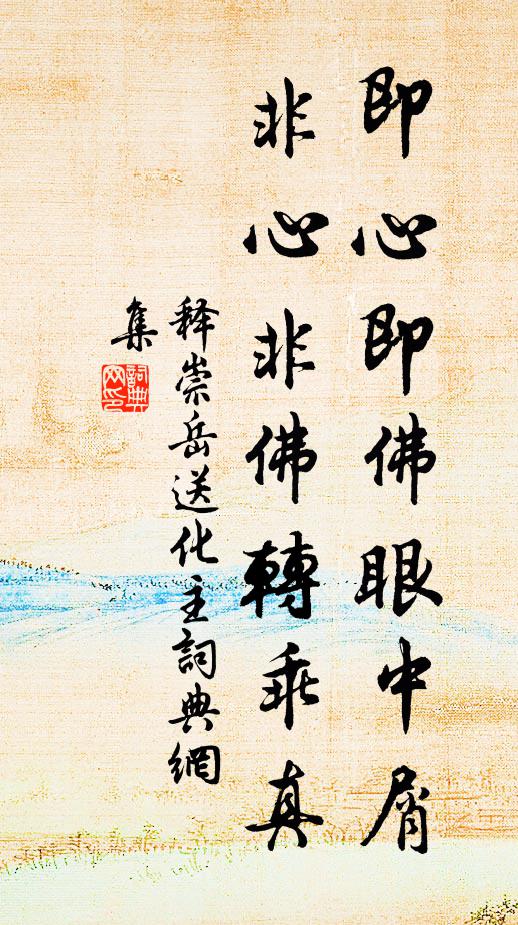 即心即佛眼中屑
非心非佛轉乖真
释崇岳送化主詞典網
集
詞典
网印